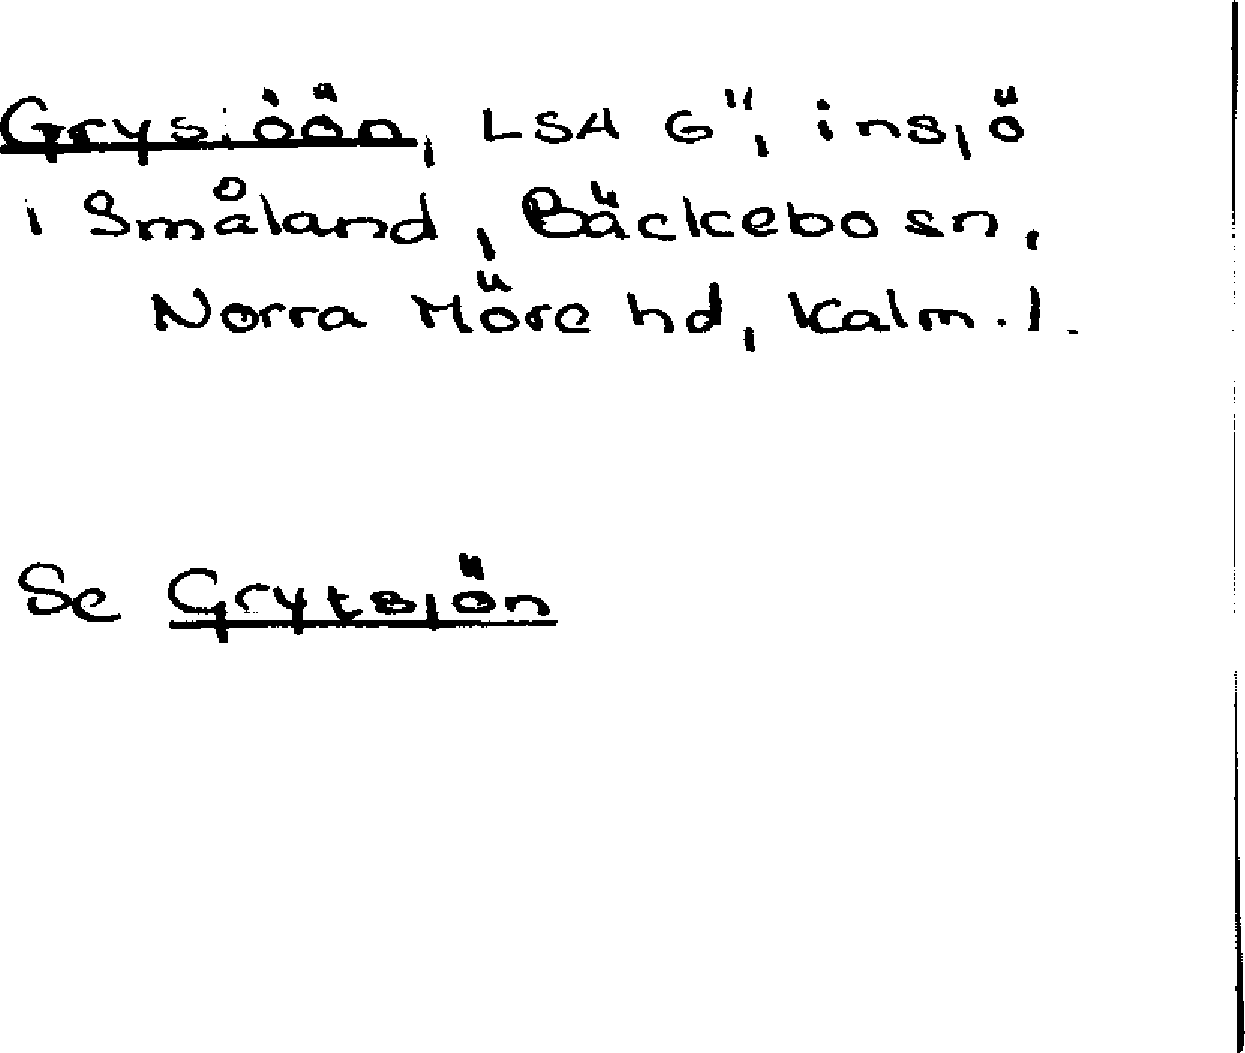 Grysjöön, LSA G", insjö
i Småland, Bäckebo sn,
Norra Möre hd, Kalm. l.
Se Grytsjön